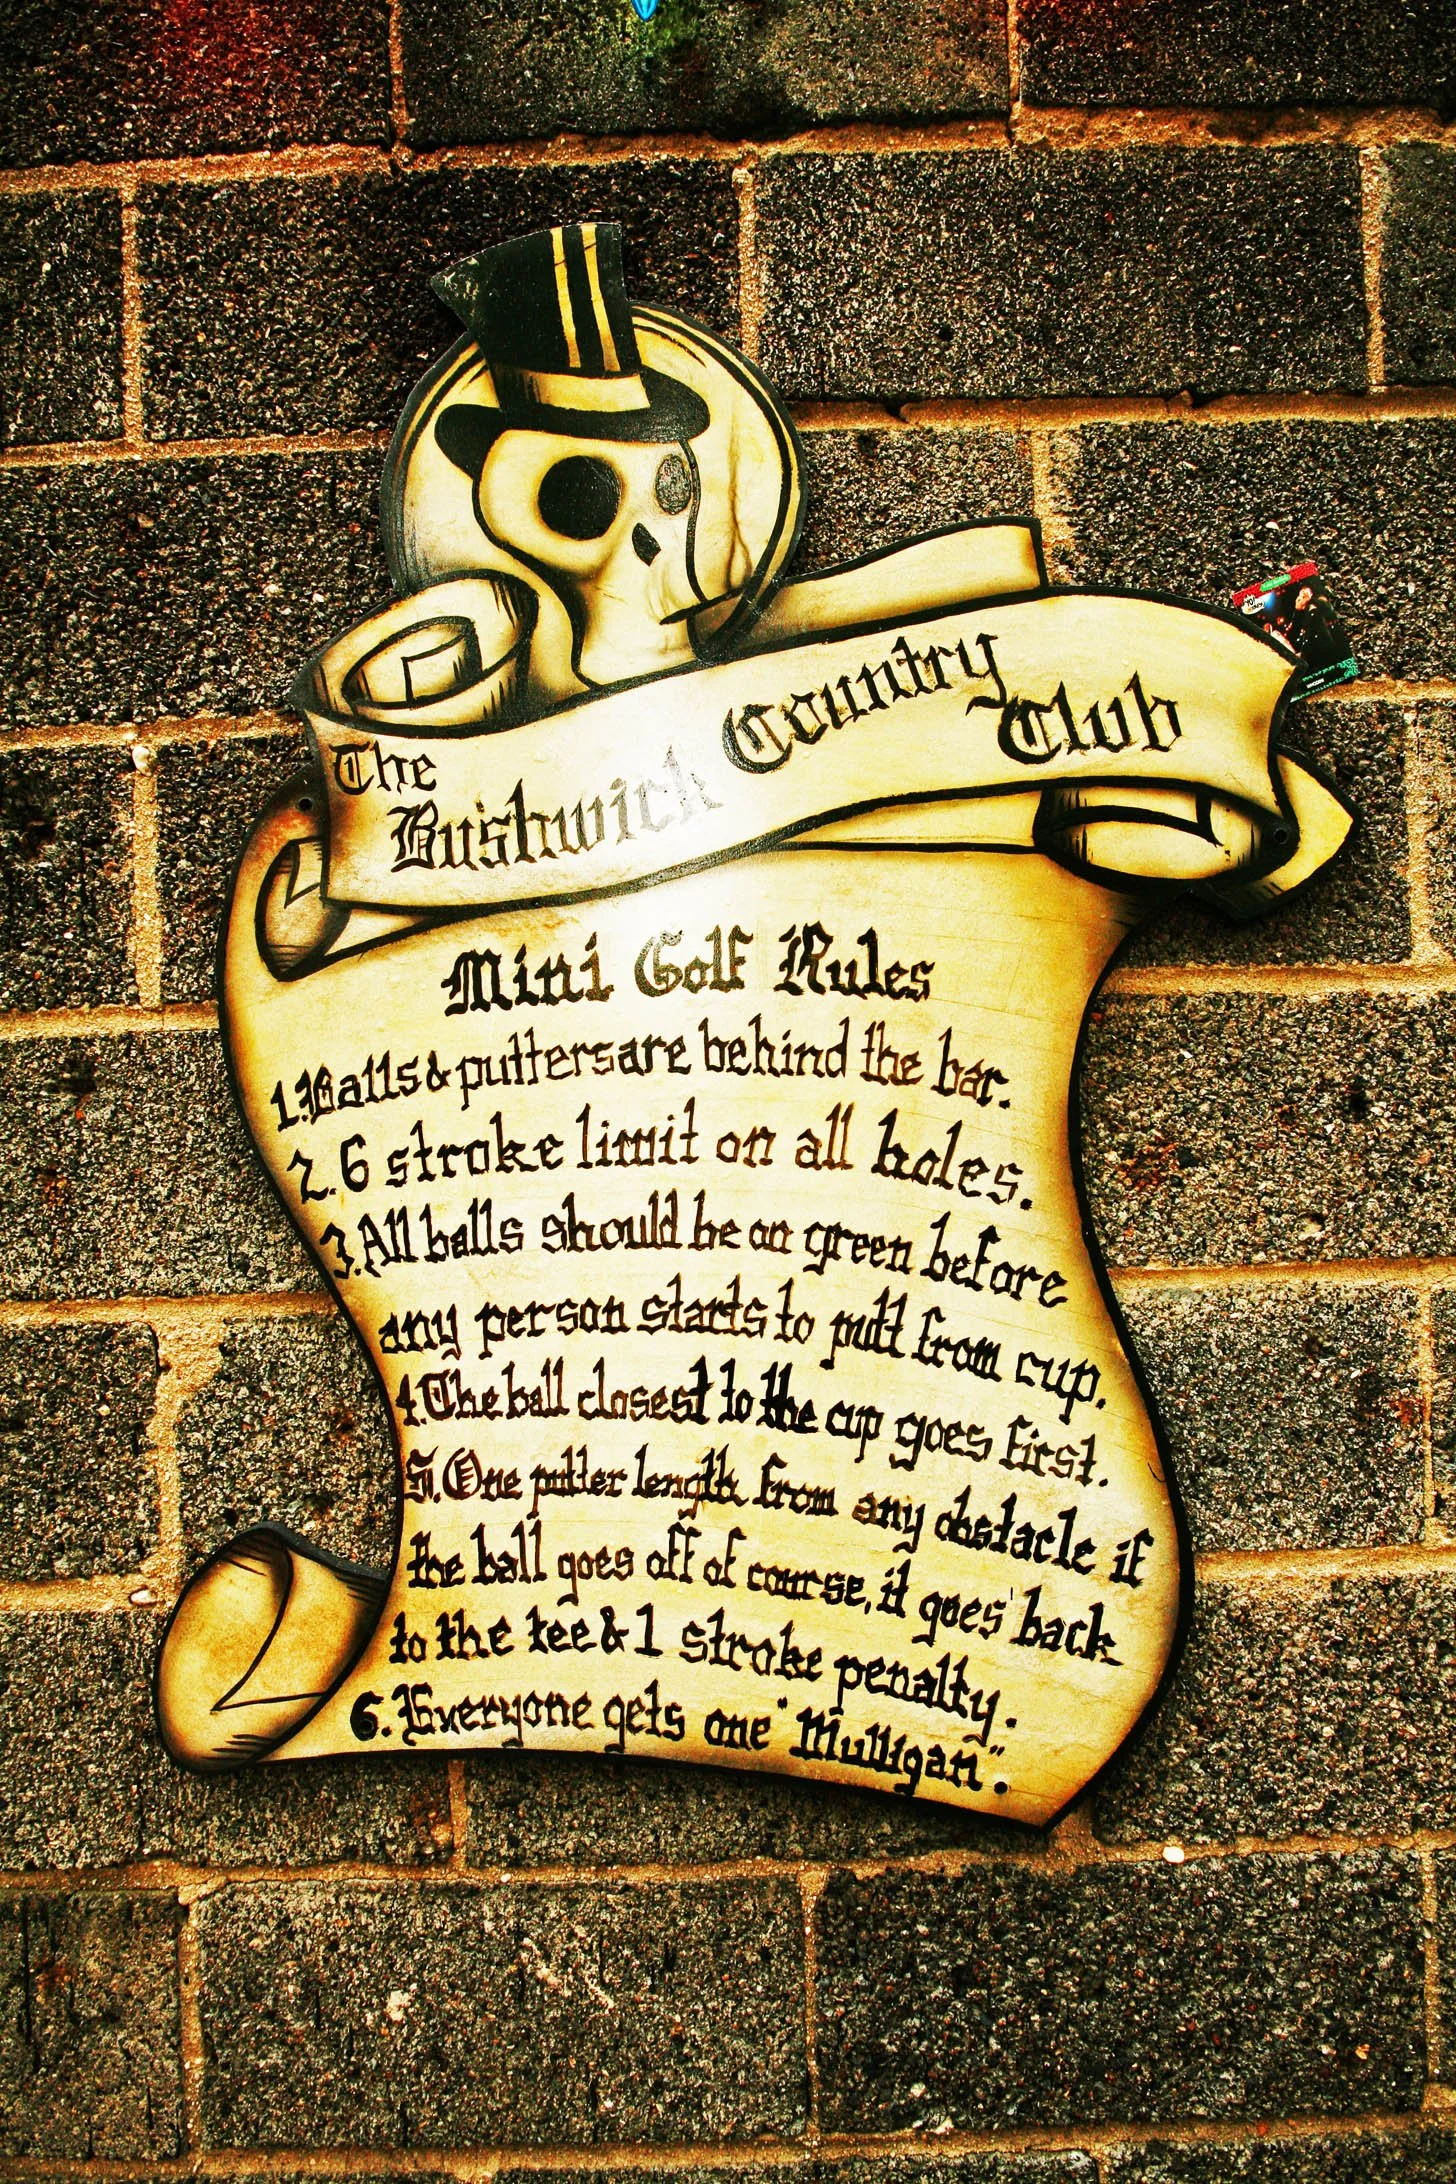 The
Bushwick Country Club
Mini Golf Rules
1. Balls & putters are behind the bar.
2. 6 stroke limit on all holes.
3. All balls should be on green before
any person starts to putt from cup.
4. The ball closest to the cup goes first.
5. One putter length from any obstacle if
the ball goes off of course, it goes back
to the tee & 1 stroke penalty.
6. Everyone gets one "Mulligan".